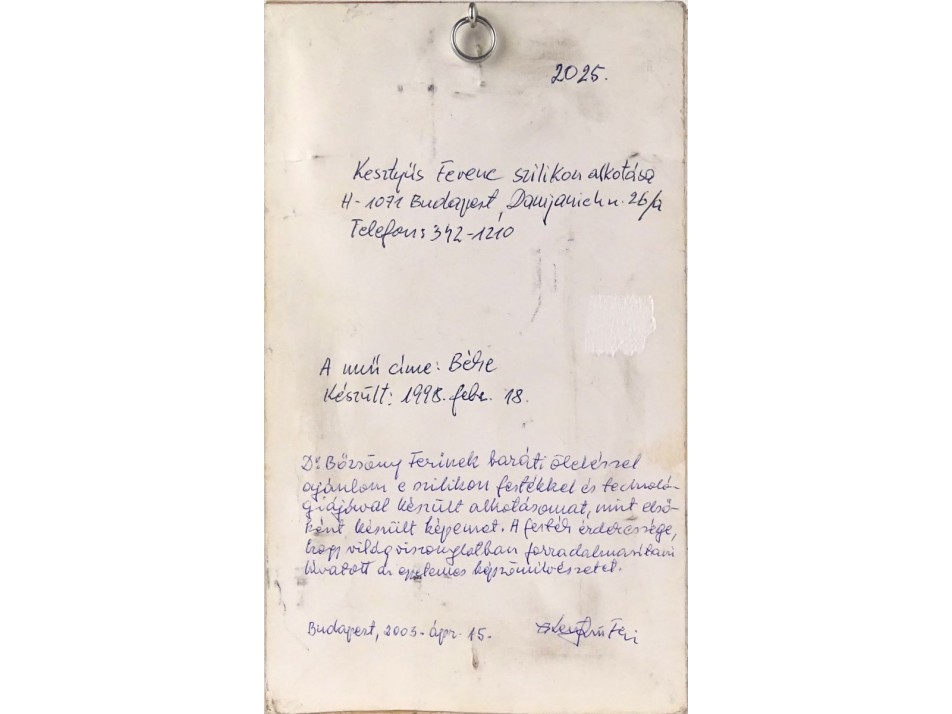 2025.
Kesztyüs Ferenc szilikon alkotása
H-1071 Budapest, Damjanich u. 26/a
Telefon: 342-1210
A mű címe: Béke
Készült: 1998. febr. 18.
Dr Börzsöny Ferinek baráti öleléssel
ajánlom e szilikon festékkel és technoló-
giájával készült alkotásomat, mint első-
ként készült képemet. A festék érdekessége,
hogy világviszonylatban forradalmasítani
hivatott az egyetemes képzőművészetet.
Budapest, 2003. ápr. 15.
Feri